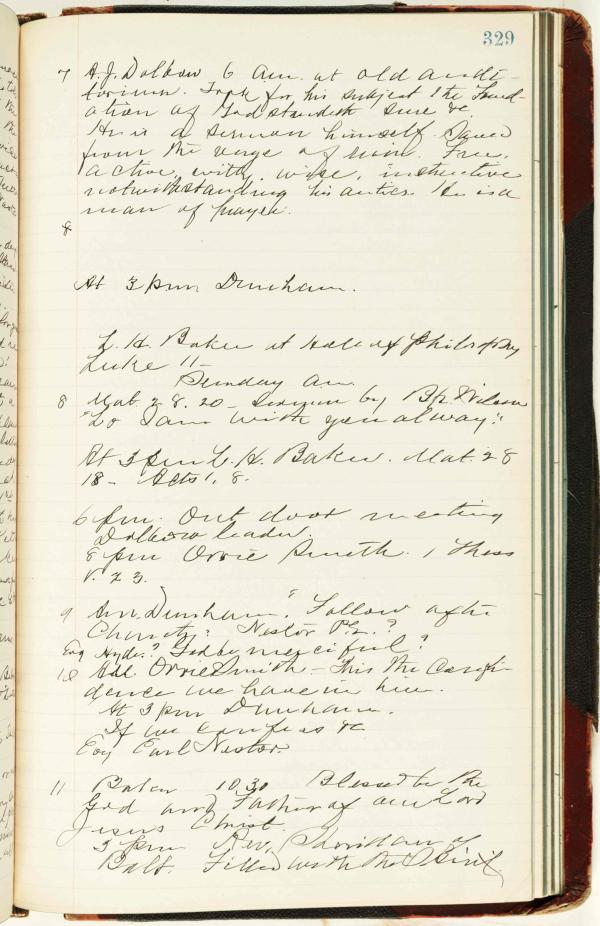 329
7 A. J. Dolbow 6 am. at old audi-
torium. Took for his subject the Found-
ation of God standeth sure &c
He is a sermon himself. Saved
from the verge of ruin. Free,
active, witty, wise, instructive
notwithstanding his antics. He is a
man of prayer.
8
At 3 pm Dunham.
L. H. Baker at Hall of Philosophy
Luke 11 -
Sunday am
8 Mat. 28. 20 - sermon by Bp Wilson
"Lo I am with you alway."
At 3 pm L. H. Baker. Mat. 28
18 - Acts 1. 8.
6 pm. Out door meeting
Dolbow leader.
8 pm Orrie Smith. 1 Thess
V. 23.
9 Am. Dunham. Follow after
Charity. Nestor P.L.?
Eng Hyde? God be merciful?
10 Orrie Smith - This the Confi-
dence we have in him.
At 3 pm Dunham.
If we confess &c
Evg Earl Nestor.
11 Baker 10.30 Blessed be the
God and Father of our Lord
Jesus Christ.
3 pm Rev. Sheridan of
Balt. Filled with the Spirit